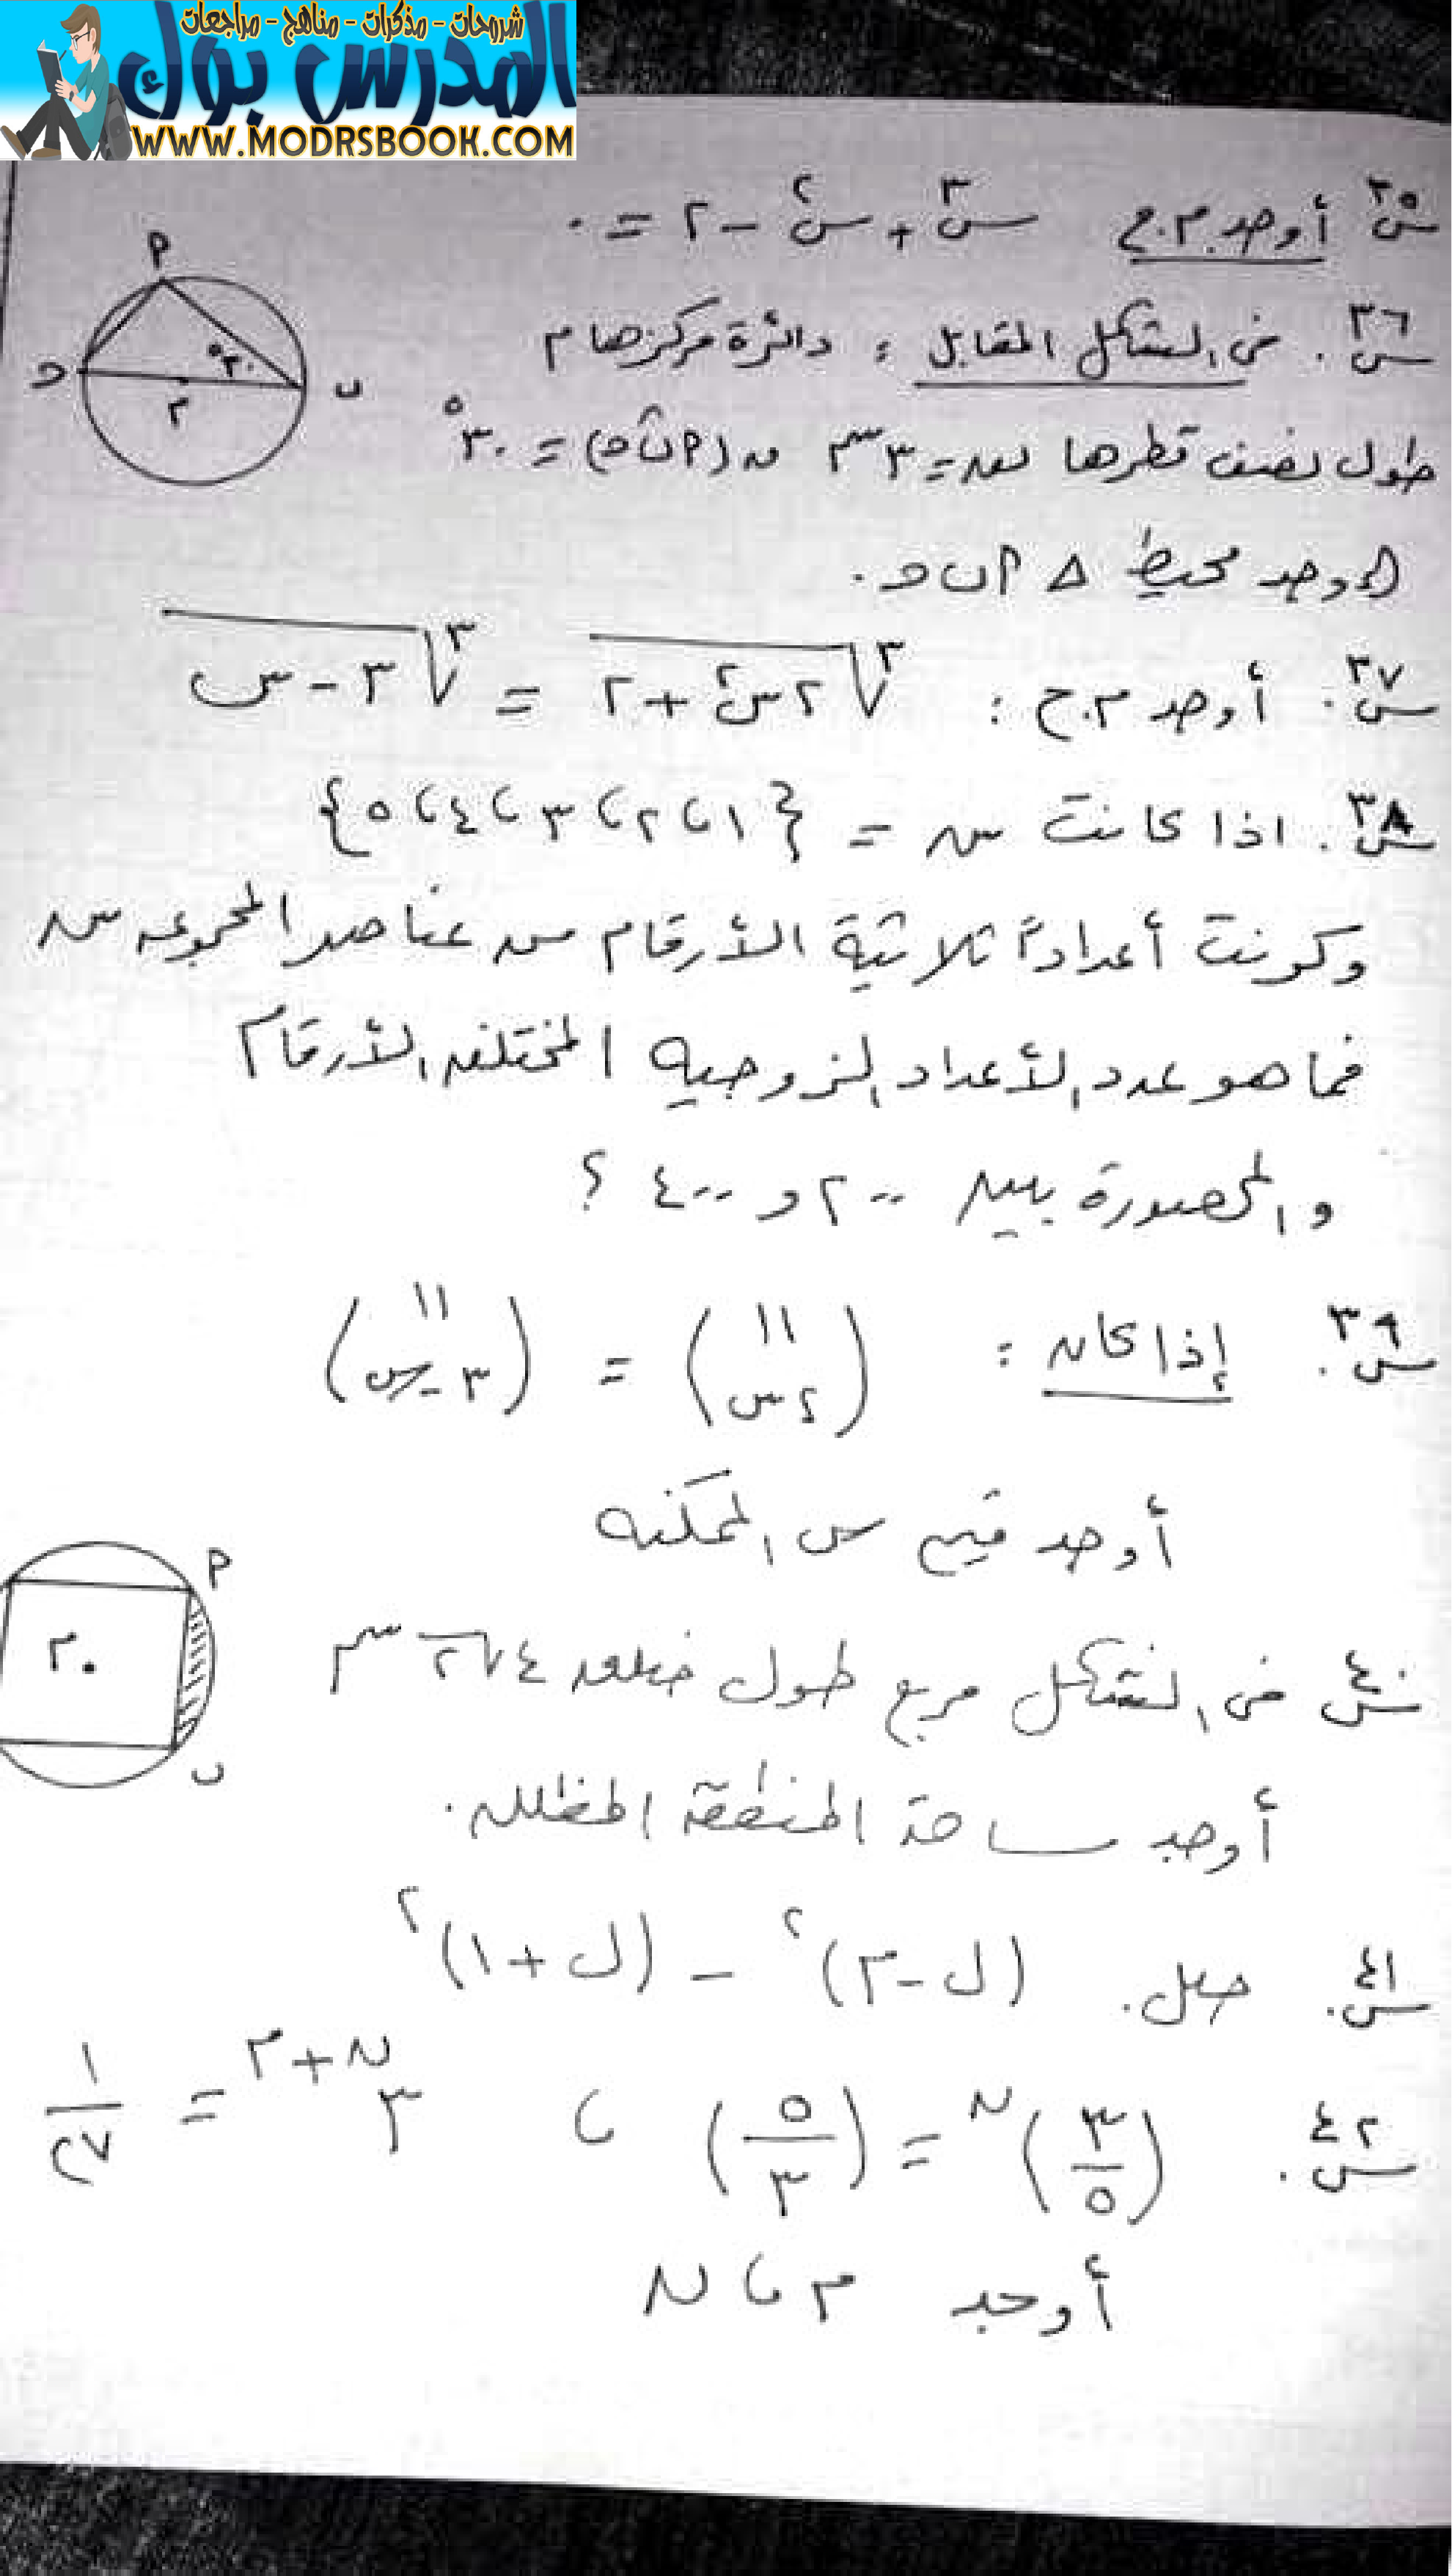 شروحات - مذكرات - مناهج - مراجعات
المدرس بوك
WWW.MODRSBOOK.COM
س٣٥ أوجد م.ح س٣ + س٢ - ٢ = ٠
س٣٦. في الشكل المقابل : دائرة مركزها م
طول نصف قطرها نق = ٣ سم ن(أ ب̂ ج) = ٣٠°
أوجد محيط △ أ ب ج.
أ
ب
ج
م
٣٠°
س٣٧. أوجد م.ح : ∛(٢س٢ + ٢) = ∛(٣ - س)
س٣٨. اذا كانت س = {١، ٢، ٣، ٤، ٥}
وكونت أعداداً ثلاثية الأرقام من عناصر المجموعه س
فما هو عدد الأعداد الزوجيه المختلفه الأرقام
والمحصورة بين ٢٠٠ و ٤٠٠ ؟
س٣٩. إذا كان : (١١ ٢س) = (١١ ٣-س)
أوجد قيم س الممكنه
س٤٠ في الشكل مربع طول ضلعه ٤√٢ سم
أوجد ساحة المنطقة المظلله.
أ
م.
ب
س٤١. حلل. (ل - ٣)٢ - (ل + ١)٢
س٤٢. (٣/٥)ن = (٥/٣) ، ٣ن+م = ١/٢٧
أوجد م ، ن